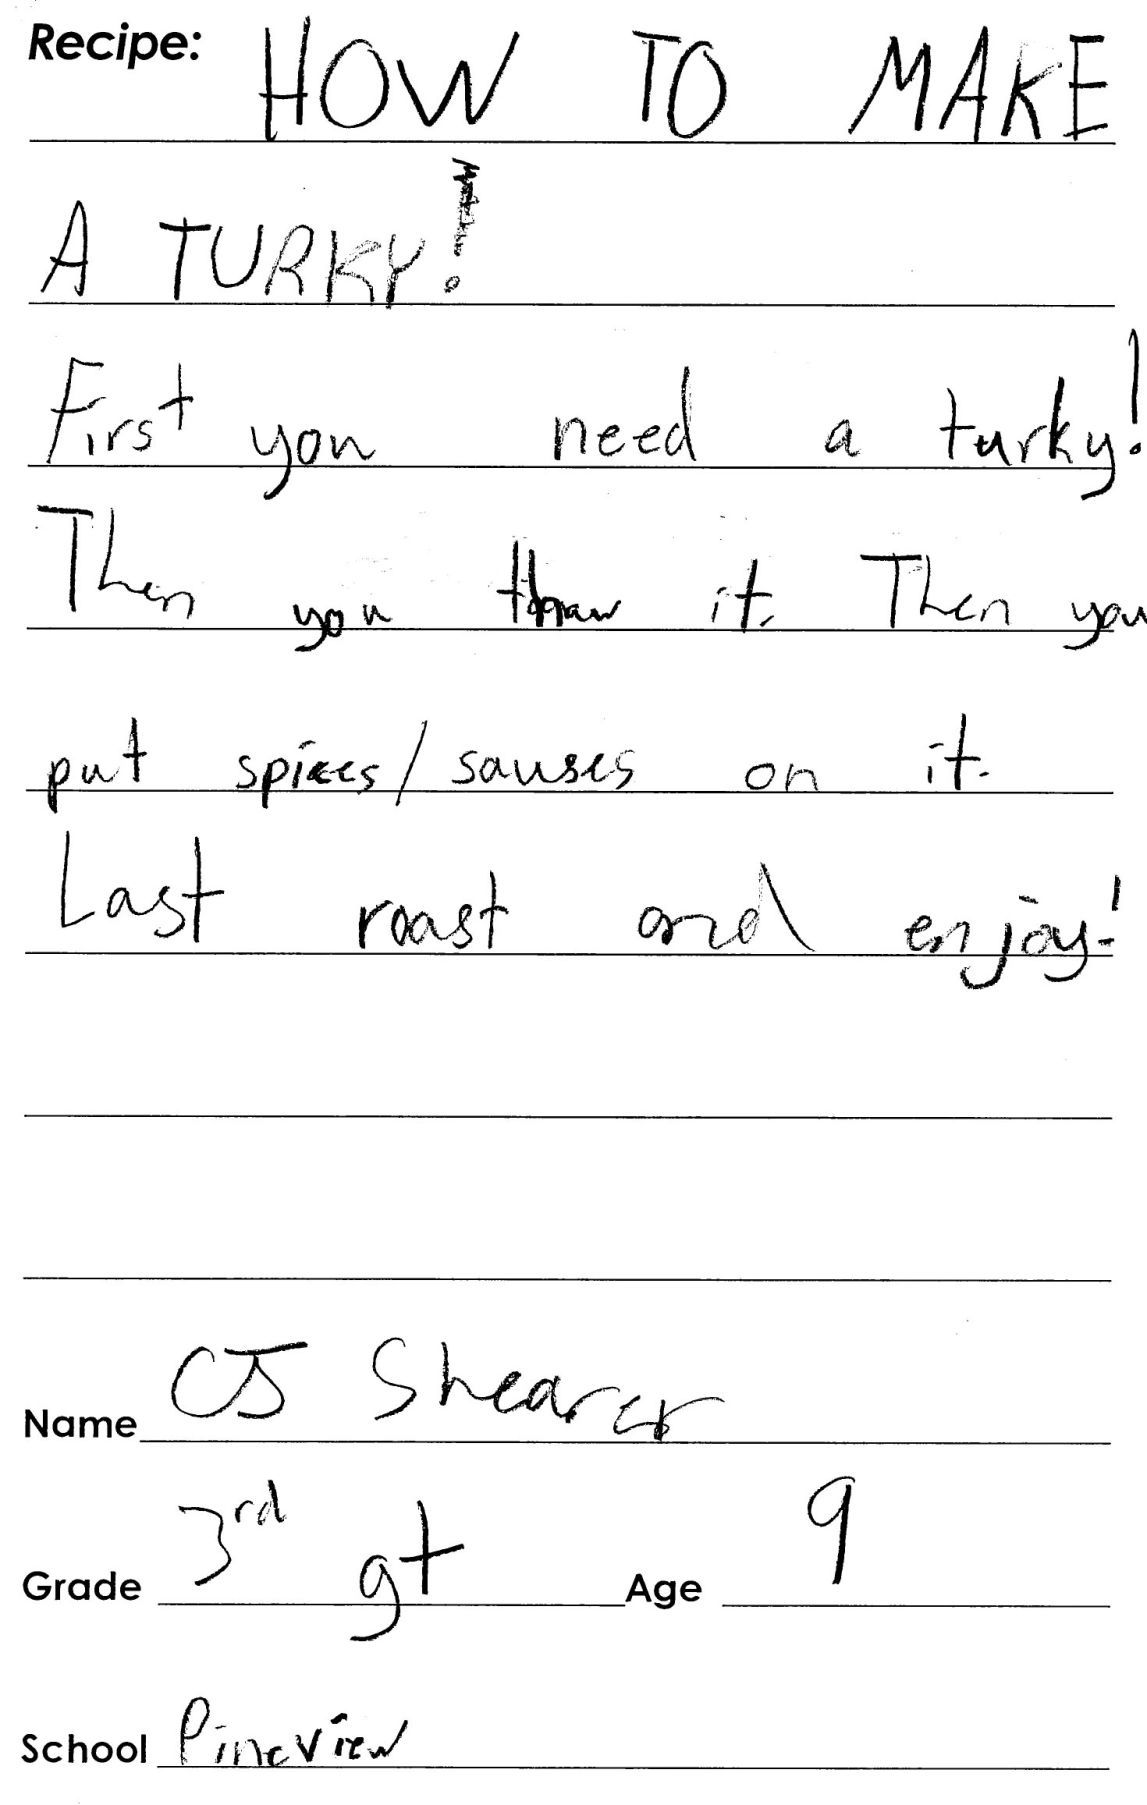 Recipe: HOW TO MAKE
A TURKY!
First you need a turky!
Then you thaw it. Then you
put spices/sauses on it.
Last roast and enjoy!
Name CJ Shearer
Grade 3rd gt Age 9
School Pineview